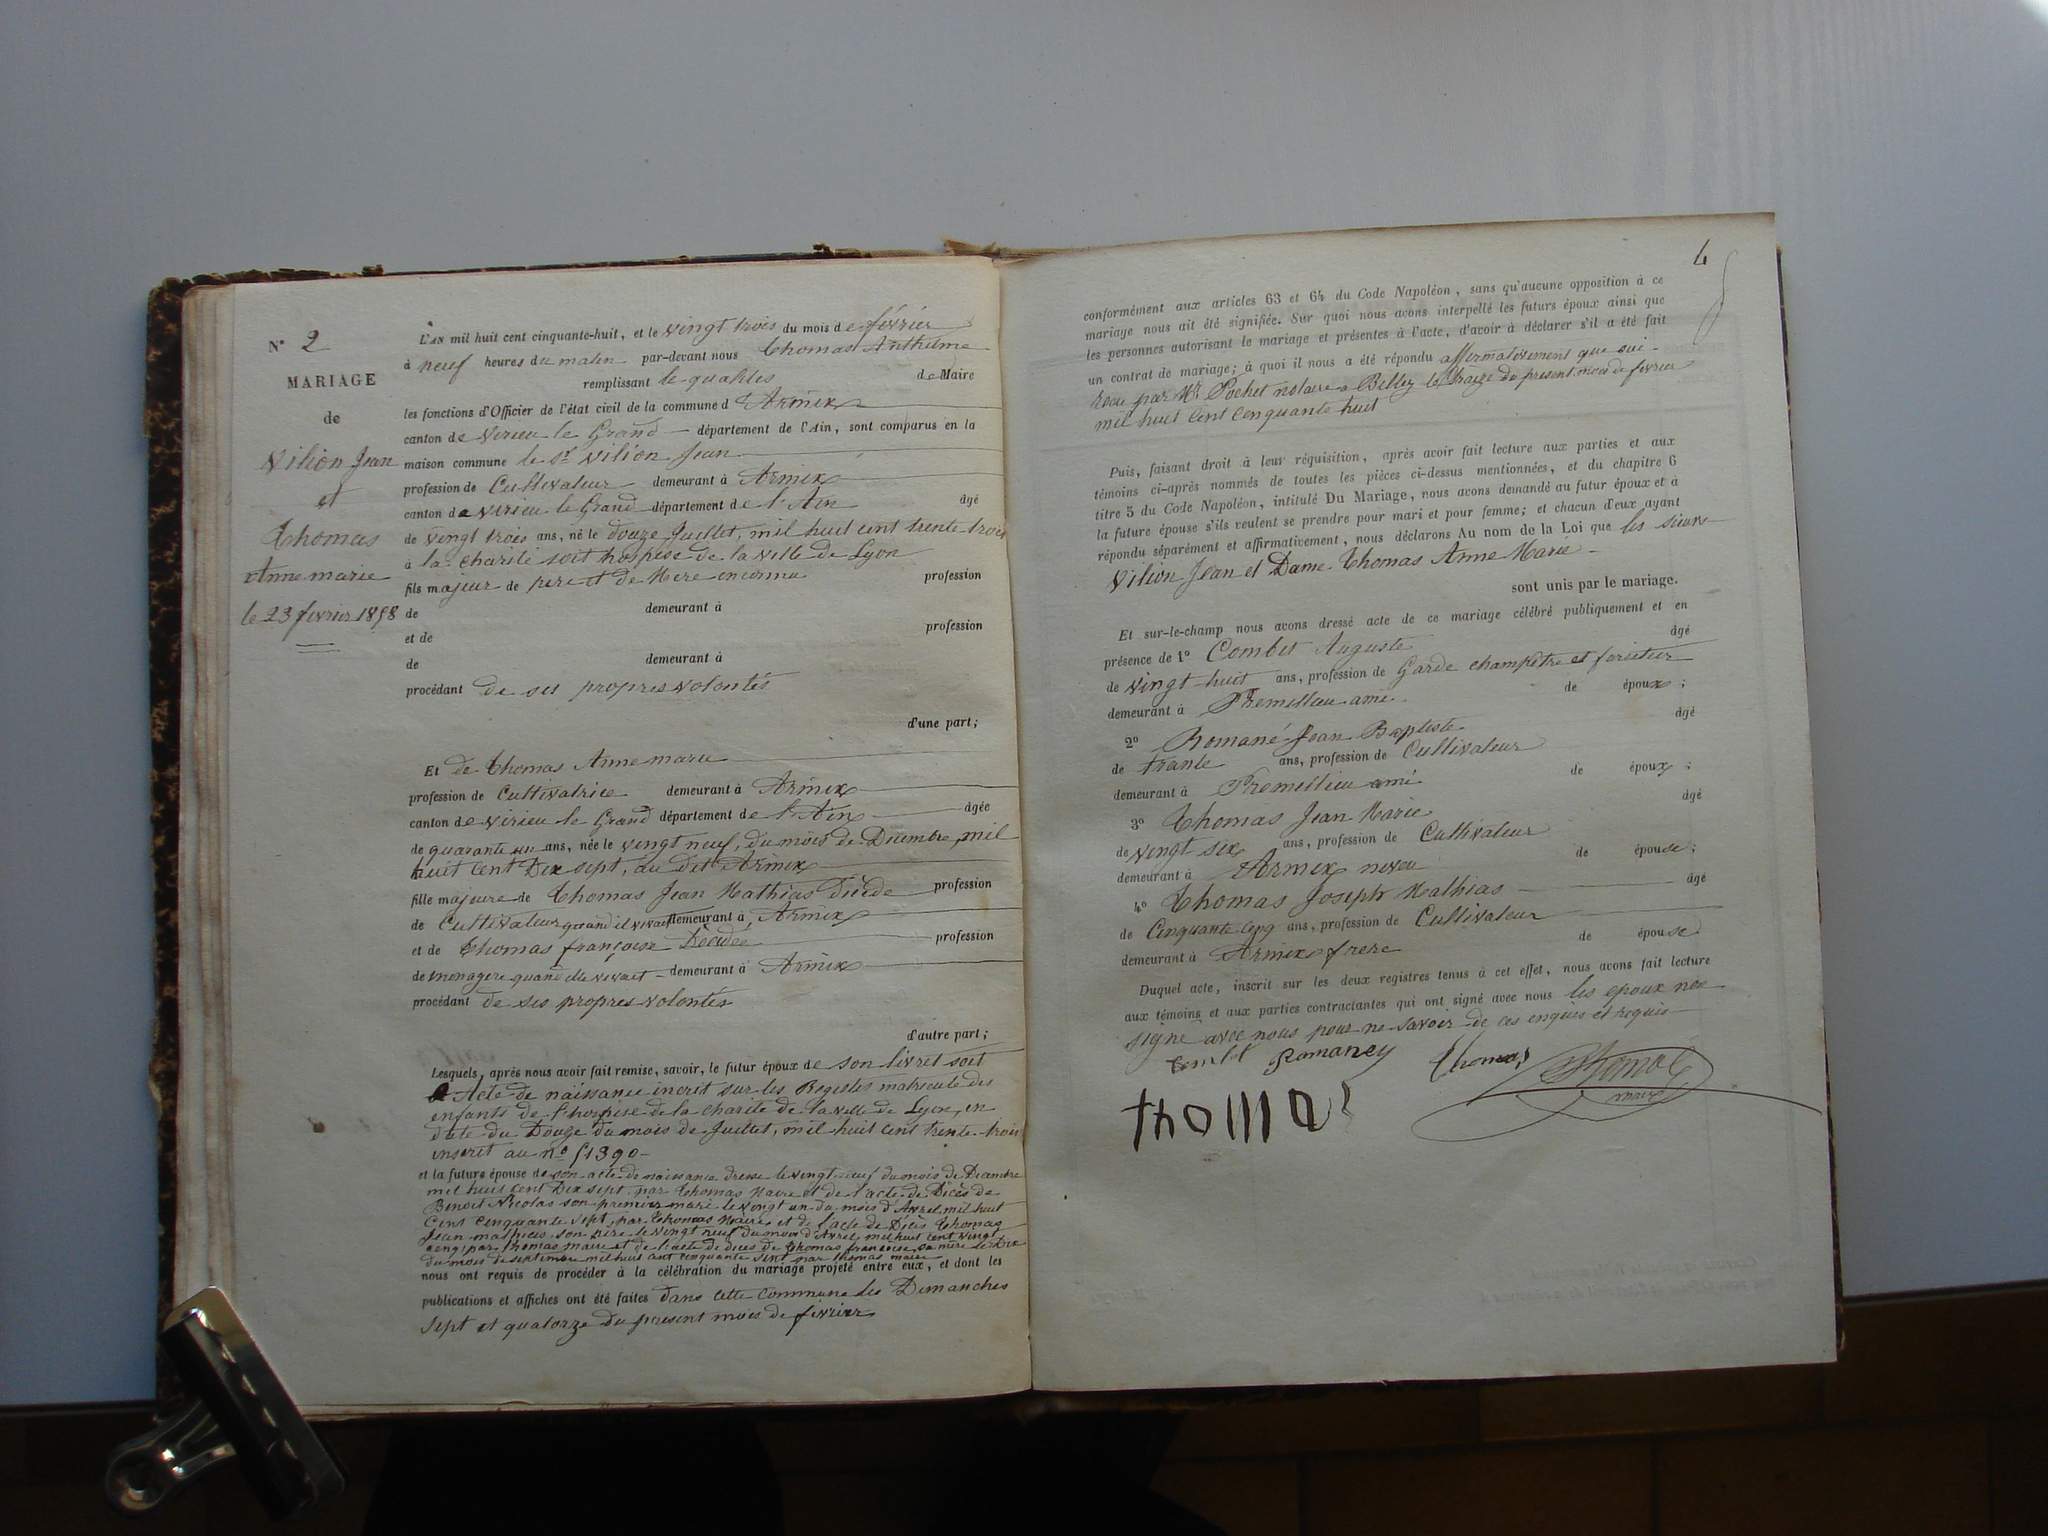 N° 2
MARIAGE
de
Vilion Jean
et
Thomas
Anne marie
le 23 fevrier 1858
L'AN mil huit cent cinquante-huit, et le vingt trois du mois de février
à neuf heures du matin par-devant nous Thomas Anthelme
remplissant le qualités de Maire
les fonctions d'Officier de l'état civil de la commune d Armix
canton de virieu le Grand département de l'Ain, sont comparus en la
maison commune le Sr Vilion Jean
profession de Cultivateur demeurant à Armix
canton de virieu le Grand département de l'Ain âgé
de vingt trois ans, né le douze Juillet, mil huit cent trente trois
à la charité soit hospise de la ville de Lyon
fils majeur de pere et de Mere inconnu profession
de demeurant à
et de profession
de demeurant à
procédant de ses propres volontés
d'une part;
Et de Thomas Anne marie
profession de Cultivatrice demeurant à Armix
canton de virieu le Grand département de l'Ain âgée
de quarante un ans, née le vingt neuf, du mois de Decembre, mil
huit cent Dix sept, au dit Armix
fille majeure de Thomas Jean Mathias Dècède profession
de Cultivateur quand il vivait demeurant à Armix
et de Thomas françoise Décédée profession
de menagere quand elle vivait demeurant à Armix
procédant de ses propres volontés
d'autre part;
Lesquels, après nous avoir fait remise, savoir, le futur époux de son livret soit
Acte de naissance incrit sur les Registes matricule des
enfants de l'hospise de la charité de la ville de Lyon, en
date du Douze du mois de Juillet, mil huit cent trente trois
inscrit au n° 51390
et la future épouse de son acte de naissance dresse le vingt neuf du mois de Decembre
mil huit Cent Dix sept par Thomas Maire et de l'acte de Décès de
Benoit Nicolas son premier mari le vingt un du mois d'Avrel mil huit
Cent cinquante sept, par Thomas Maire et de l'acte de Décès Thomas
Jean mathieu son père le vingt neuf du mois d'Avrel mil huit cent vingt
cinq par Thomas maire et de l'acte de deces de Thomas francoise sa mère le Dix
du mois de septembre mil huit cent cinquante sept par Thomas maire
nous ont requis de procéder à la célébration du mariage projeté entre eux, et dont les
publications et affiches ont été faites dans cette commune les Dimanches
sept et quatorze du present mois de fevrier
4
conformément aux articles 63 et 64 du Code Napoléon, sans qu'aucune opposition à ce
mariage nous ait été signifiée. Sur quoi nous avons interpellé les futurs époux ainsi que
les personnes autorisant le mariage et présentes à l'acte, d'avoir à déclarer s'il a été fait
un contrat de mariage; à quoi il nous a été répondu affirmativement que oui
recu par Me Pochet notaire a Belley le traize du present mois de fevrier
mil huit Cent Cinquante huit
Puis, faisant droit à leur réquisition, après avoir fait lecture aux parties et aux
témoins ci-après nommés de toutes les pièces ci-dessus mentionnées, et du chapitre 6
titre 5 du Code Napoléon, intitulé Du Mariage, nous avons demandé au futur époux et à
la future épouse s'ils veulent se prendre pour mari et pour femme; et chacun d'eux ayant
répondu séparément et affirmativement, nous déclarons Au nom de la Loi que les sieurs
Vilion Jean et Dame Thomas Anne Marie
sont unis par le mariage.
Et sur-le-champ nous avons dressé acte de ce mariage célébré publiquement et en
présence de 1° Combet Auguste âgé
de vingt huit ans, profession de Garde champêtre et foretier
demeurant à Premillieu ami de époux;
2° Romané Jean Baptiste âgé
de trante ans, profession de Cultivateur
demeurant à Premillieu ami de époux;
3° Thomas Jean Marie âgé
de vingt six ans, profession de Cultivateur
demeurant à Armix neveu de épouse;
4° Thomas Joseph Mathias âgé
de Cinquante cinq ans, profession de Cultivateur
demeurant à Armix frere de épouse
Duquel acte, inscrit sur les deux registres tenus à cet effet, nous avons fait lecture
aux témoins et aux parties contractantes qui ont signé avec nous les epoux non
signé avec nous pour ne savoir de ces enquis et requis
Combet Romaney Thomas Thomas
maire
thomas